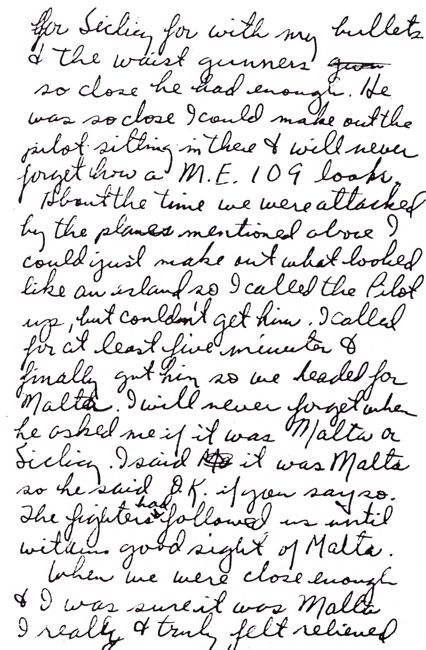 for Sicliey for with my bullets
& the waist gunners
so close he had enough. He
was so close I could make out the
pilot sitting in there & will never
forget how a M.E. 109 looks.
About the time we were attacked
by the planes mentioned above I
could just make out what looked
like an island so I called the Pilot
up, but couldn't get him. I called
for at least five minutes &
finally got him so we headed for
Malta. I will never forget when
he asked me if it was Malta or
Sicliey. I said it was Malta
so he said O.K. if you say so.
The fighters had followed us until
within good sight of Malta.
When we were close enough
& I was sure it was Malta
I really & truly felt relieved